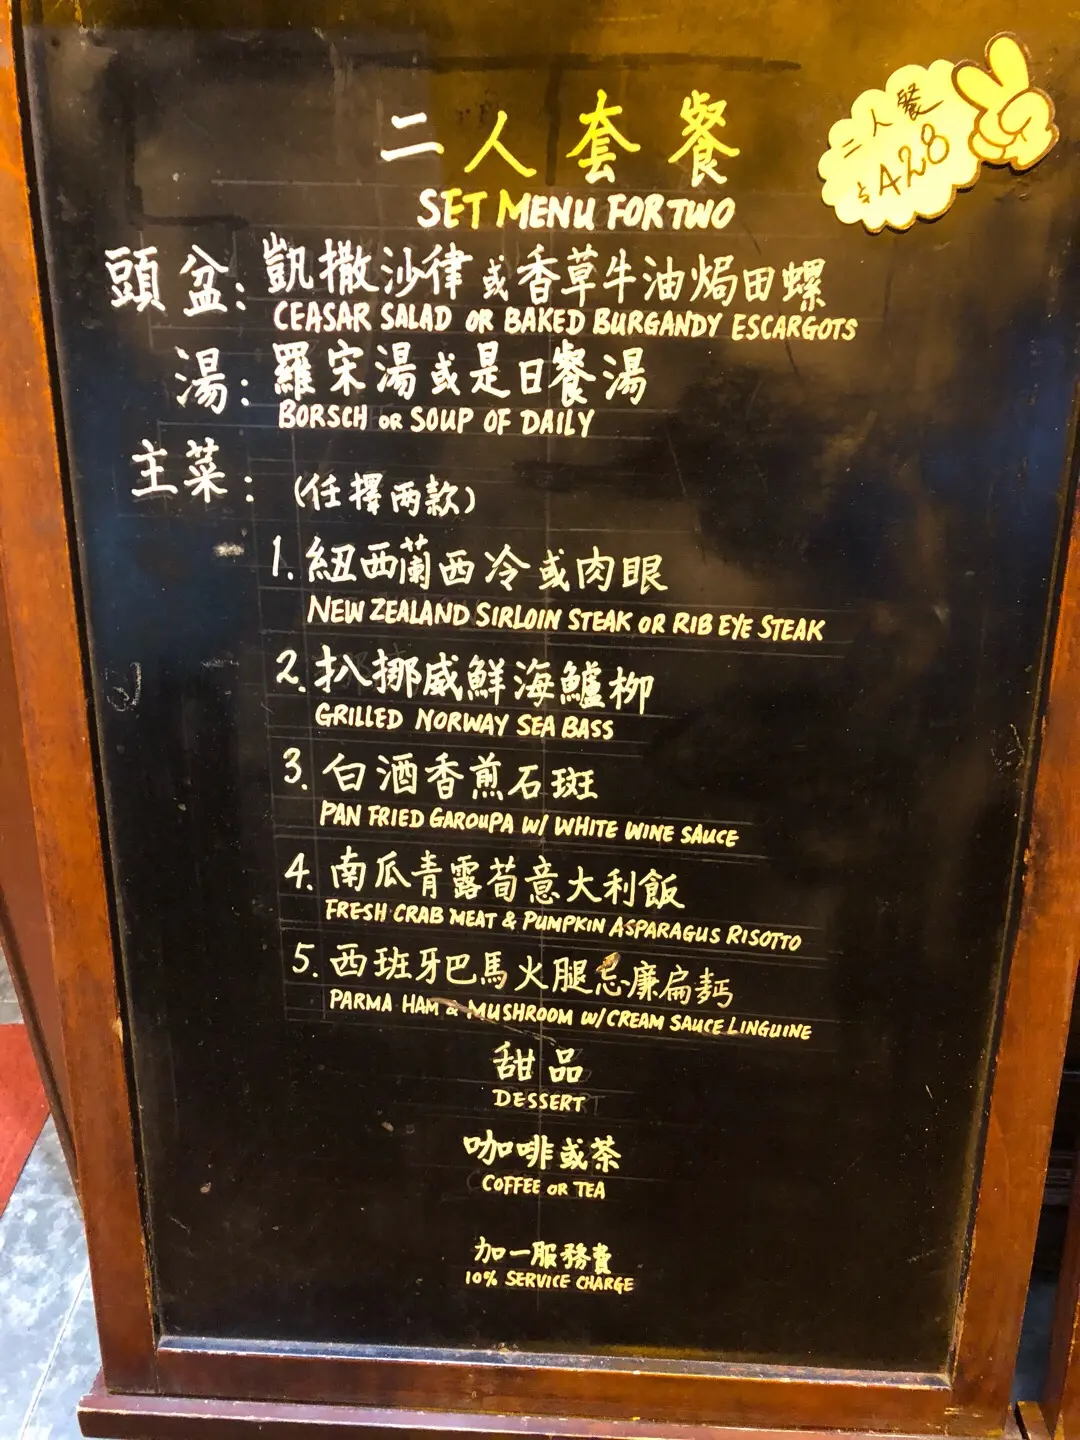 二人套餐
SET MENU FOR TWO
二人餐
$428
頭盆: 凱撒沙律或香草牛油焗田螺
CEASAR SALAD OR BAKED BURGANDY ESCARGOTS
湯: 羅宋湯或是日餐湯
BORSCH OR SOUP OF DAILY
主菜: (任擇兩款)
1. 紐西蘭西冷或肉眼
NEW ZEALAND SIRLOIN STEAK OR RIB EYE STEAK
2. 扒挪威鮮海鱸柳
GRILLED NORWAY SEA BASS
3. 白酒香煎石斑
PAN FRIED GAROUPA W/ WHITE WINE SAUCE
4. 南瓜青露荀意大利飯
FRESH CRAB MEAT & PUMPKIN ASPARAGUS RISOTTO
5. 西班牙巴馬火腿忌廉扁麵
PARMA HAM & MUSHROOM W/CREAM SAUCE LINGUINE
甜品
DESSERT
咖啡或茶
COFFEE OR TEA
加一服務費
10% SERVICE CHARGE